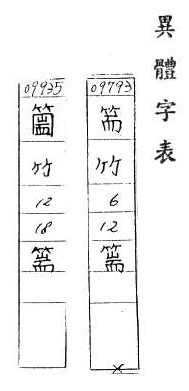 異體字表
09793
竹
6
12
篅
09935
竹
12
18
篅